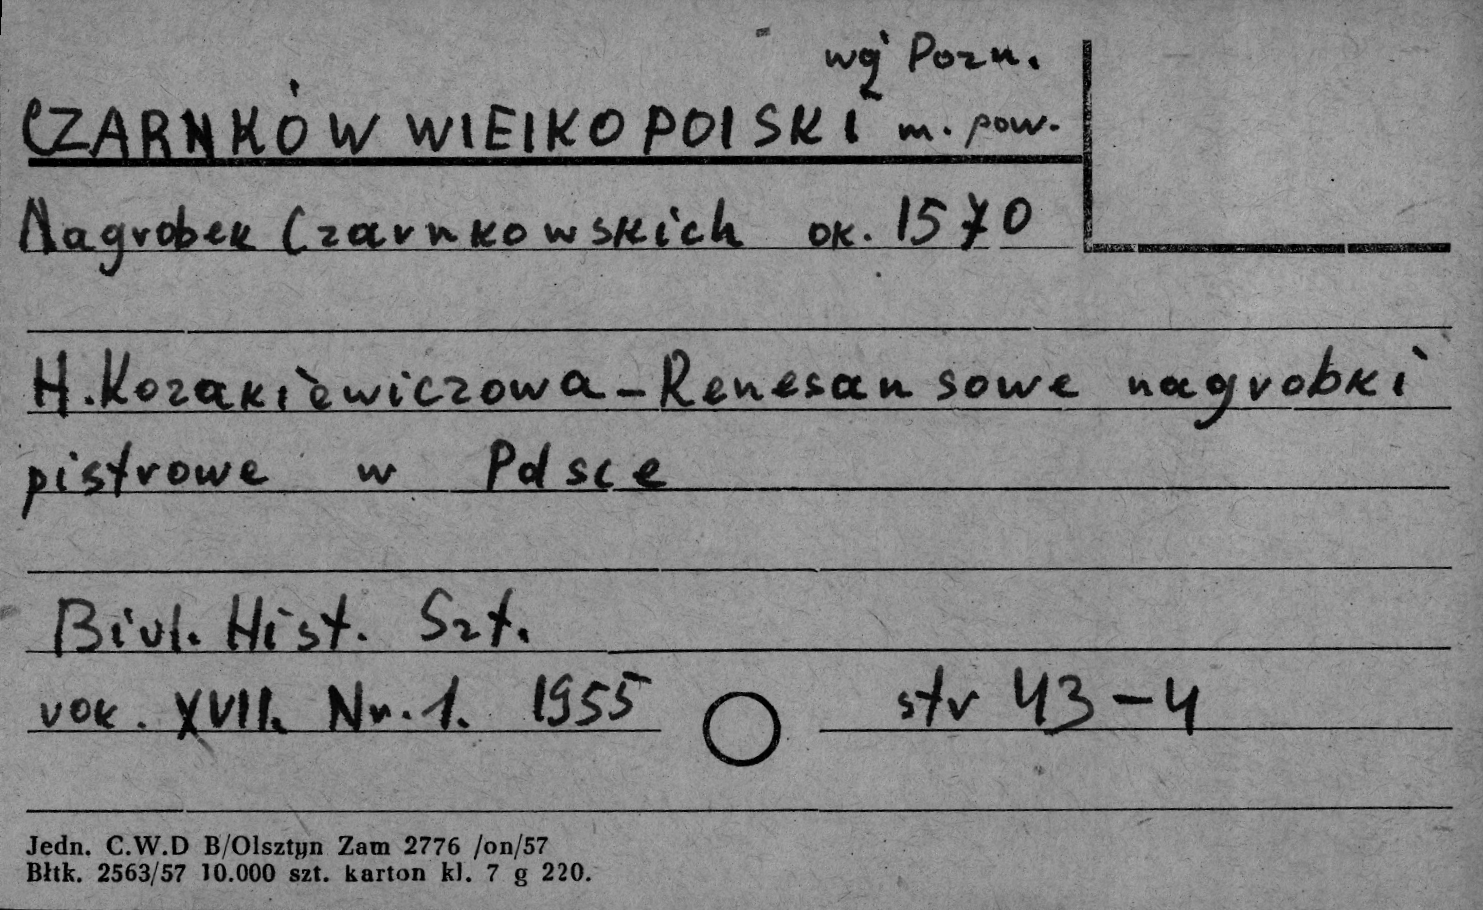 woj Pozn.
CZARNKÓW WIELKOPOLSKI m. pow.
Nagrobek Czarnkowskich ok. 1570
H. Kozakiewiczowa – Renesansowe nagrobki
piętrowe w Polsce
Biul. Hist. Szt.
rok. XVII. Nr. 1. 1955 str 43 – 4
Jedn. C.W.D B/Olsztyn Zam 2776 /on/57
Błtk. 2563/57 10.000 szt. karton kl. 7 g 220.